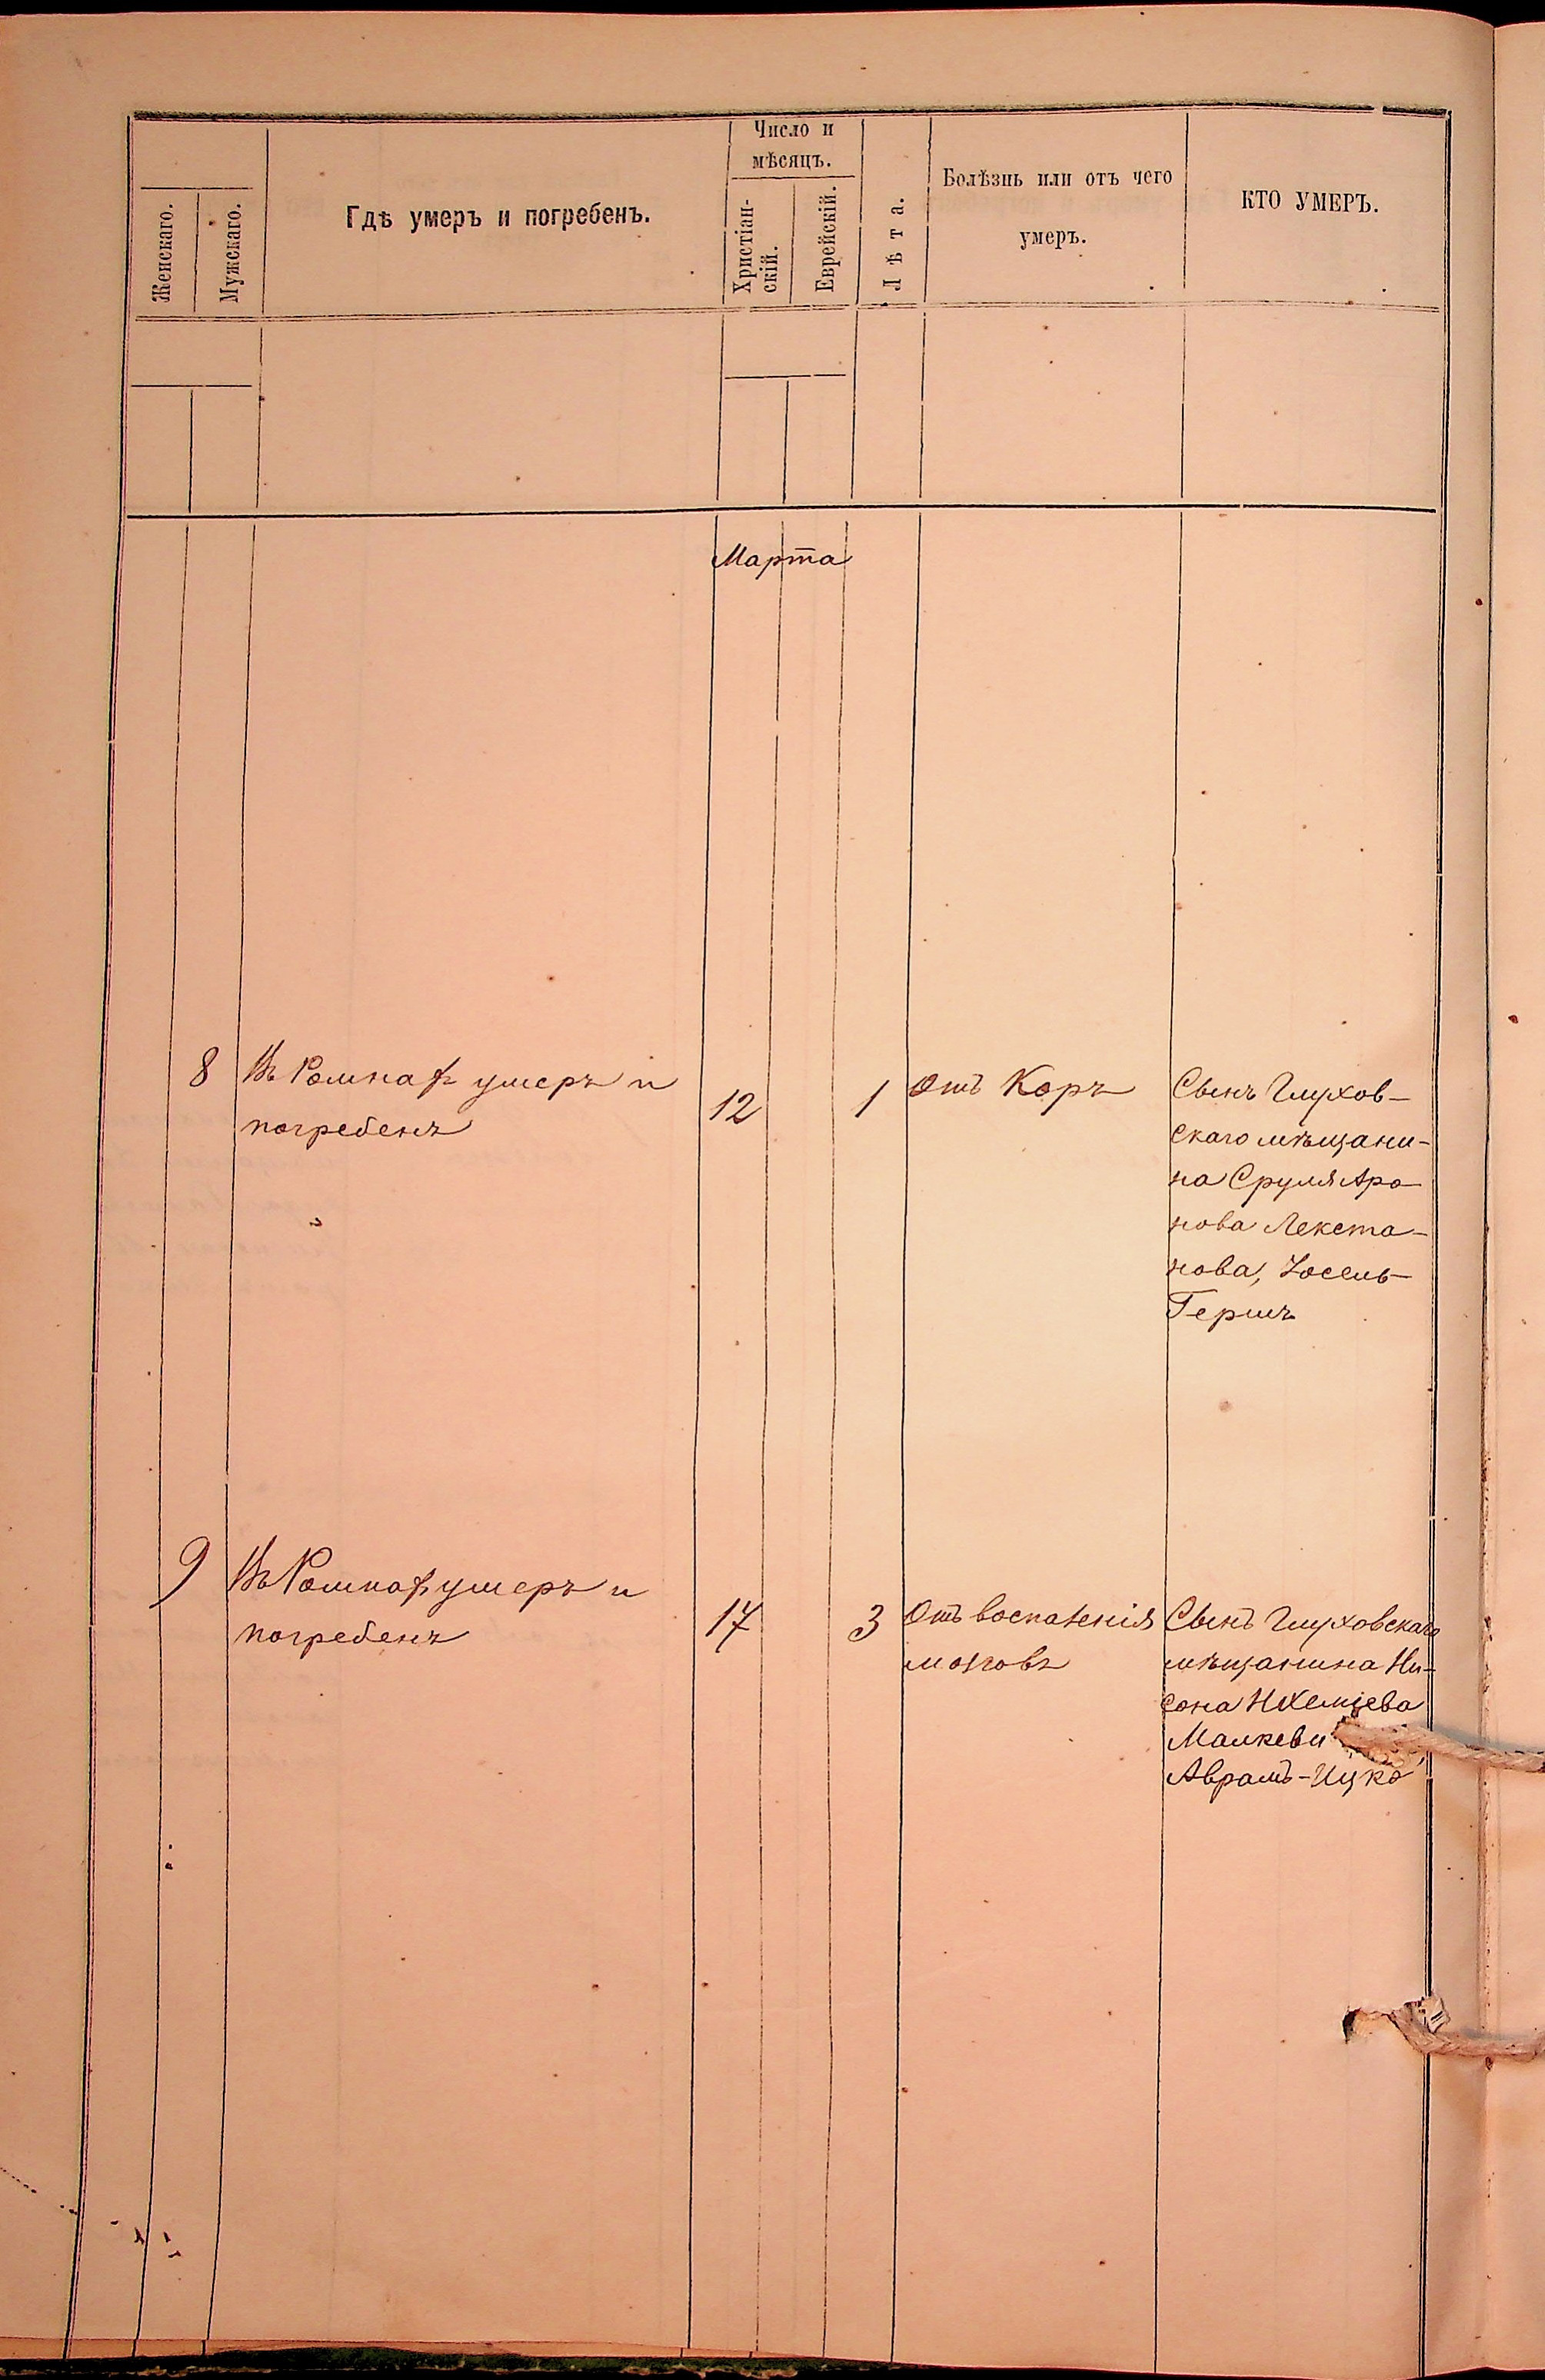 Число и
мѣсяцъ.
Женскаго.
Мужскаго.
Гдѣ умеръ и погребенъ.
Христіан-
скій.
Еврейскій.
Лѣта.
Болѣзнь или отъ чего
умеръ.
КТО УМЕРЪ.
Марта
8
Въ Ромнахъ умеръ и
погребенъ
12
1
отъ Корь
Сынъ Глухов-
скаго мѣщани-
на Сруля Аро-
нова Лекста-
нова, Іосель-
Гершъ
9
Въ Ромнахъ умеръ и
погребенъ
17
3
Отъ воспаленія
мозговъ
Сынъ Глуховскаго
мѣщанина Ни-
сона
Малкеви
Аврамъ-Ицко